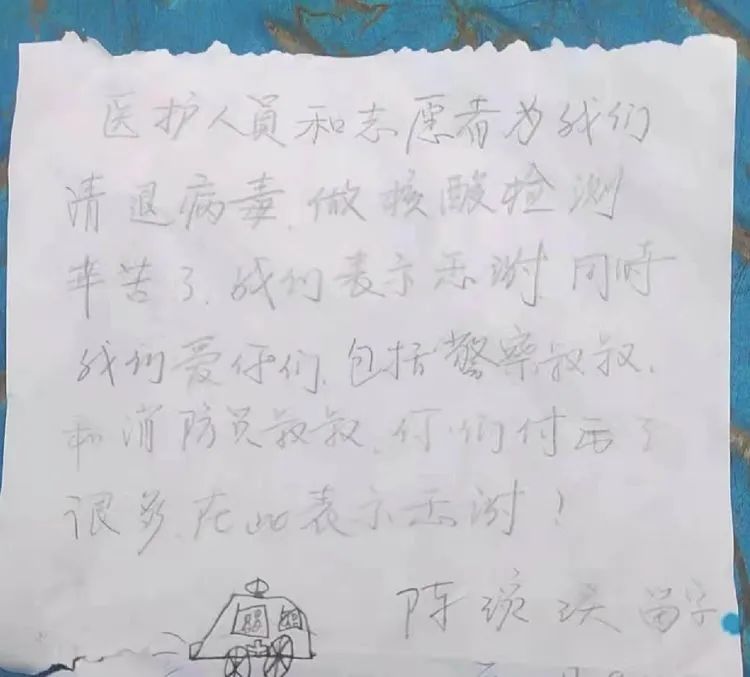 医护人员和志愿者为我们
清退病毒.做核酸检测
辛苦了.我们表示感谢 同时
我们爱你们.包括警察叔叔.
和消防员叔叔.你们付出了
很多.在此表示感谢!
陈 留字